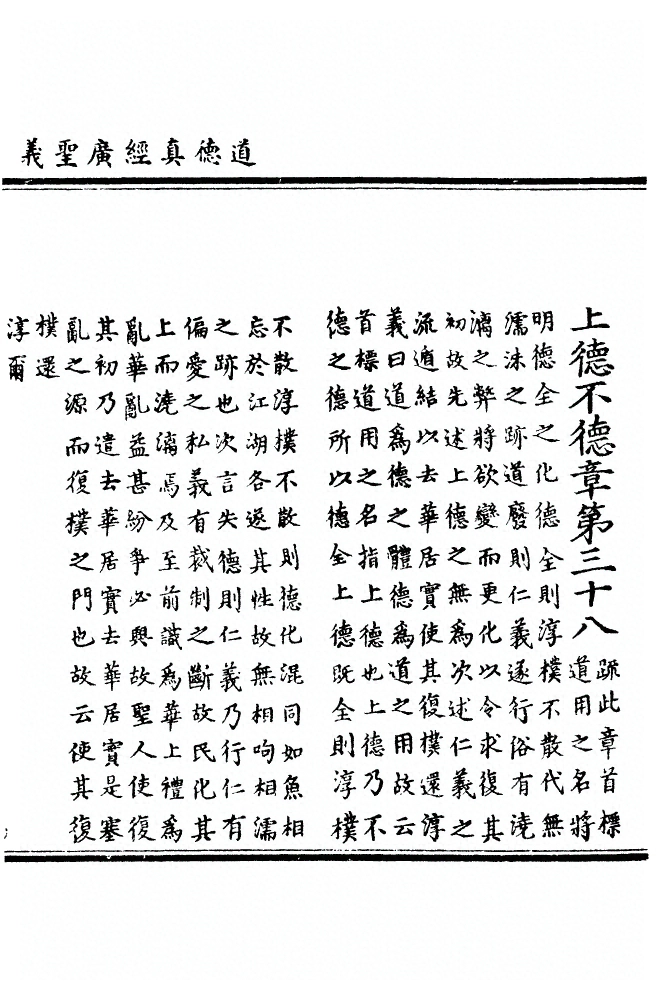 道德真經廣聖義
上德不德章第三十八
䟽此章首標
道用之名將
明德全之化德全則淳樸不散代無
濡沫之跡道廢則仁義遂行俗有澆
漓之弊將欲變而更化以令求復其
初故先述上德之無爲次述仁義之
流遁結以去華居實使其復樸還淳
義曰道爲德之體德爲道之用故云
首標道用之名指上德也上德乃不
德之德所以德全上德既全則淳樸
不散淳樸不散則德化混同如魚相
忘於江湖各遂其性故無相呴相濡
之跡也次言失德則仁義乃行仁有
偏愛之私義有裁制之斷故民化其
上而澆漓焉及至前識爲華上禮爲
亂華亂益甚紛爭必興故聖人使復
其初乃遣去華居實去華居實是塞
亂之源而復樸之門也故云使其復
樸還
淳爾